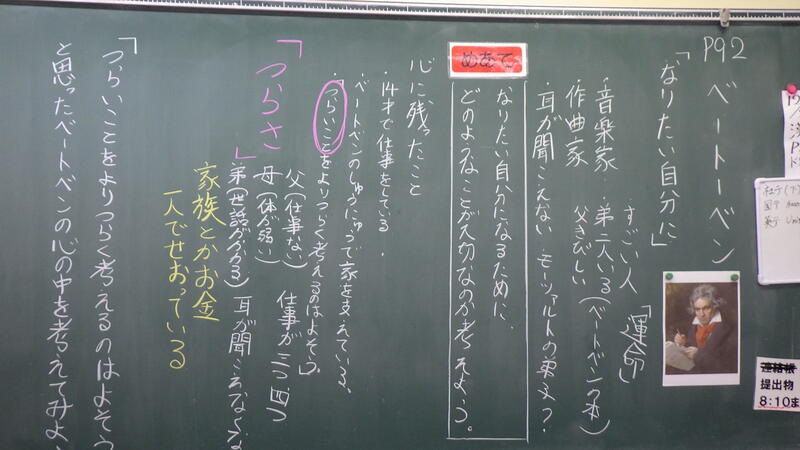 P92 ベートーベン
「なりたい自分に」
すごい人 「運命」
・音楽家 ・弟二人いる(ベートーベンの本)
作曲家 父きびしい
・耳が聞こえない ・モーツァルトの
めあて
なりたい自分になるために、
どのようなことが大切なのか考えよう。
心に残ったこと
・14才で仕事をしている
・ベートーベンのしゅうにゅうで家を支えている。
・「つらいことをよりつらく考えるのはよそう」
「つらさ」
父(仕事ない) 仕事が三つ四つ
母(体が弱い)
弟(世話がかかる) 耳が聞こえなくな
家族とかお金
一人でせおっている
「つらいことをよりつらく考えるのはよそう
と思ったベートーベンの心の中を考えてみよ
連絡帳
提出物
8:10ま